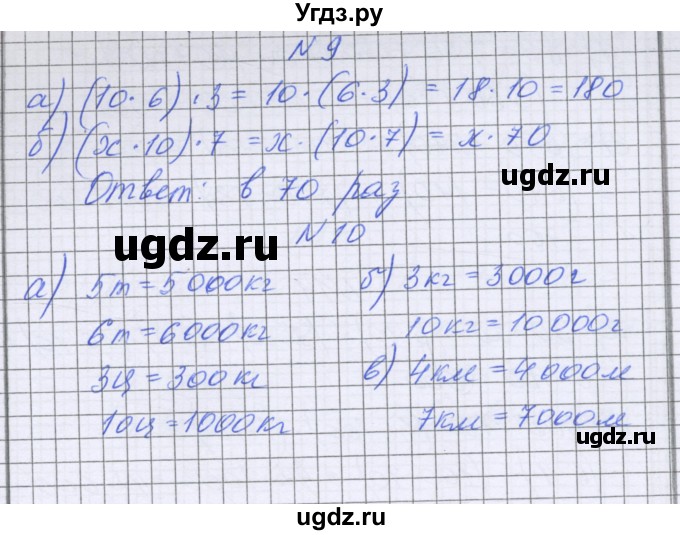 Угдз.ру
N 9
а) (10 · 6) · 3 = 10 · (6 · 3) = 18 · 10 = 180
б) (x · 10) · 7 = x · (10 · 7) = x · 70
Ответ: в 70 раз
ugdz.ru
N 10
ugdz.ru
а) 5т = 5000кг
6т = 6000кг
3ц = 300кг
10ц = 1000кг
б) 3кг = 3000г
10кг = 10000г
в) 4км = 4000м
7км = 7000м
ugdz.ru
ugdz.ru